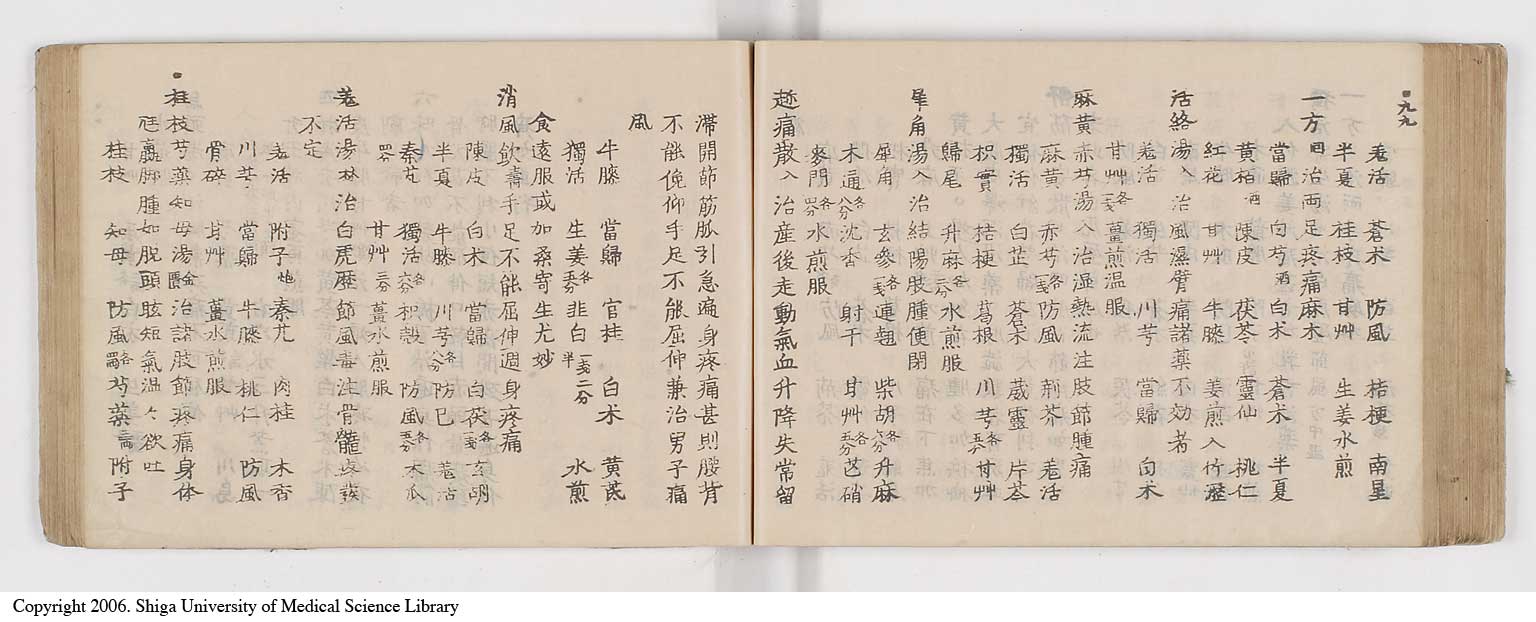 九九
羌活 蒼朮 防風 桔梗 南星
半夏 桂枝 甘艸 生姜水煎
一方回治両足疼痛麻木
當歸 白芍酒 白朮 蒼朮 半夏
黄栢酒 陳皮 茯苓 靈仙 桃仁
紅花 甘艸 牛膝 姜煎入竹瀝
活絡湯入治風濕臂痛諸薬不効者
羌活 獨活 川芎 當歸 白朮
甘艸各一戔薑煎温服
麻黄赤芍湯入治湿熱流注肢節腫痛
麻黄 赤芍各一戔防風 荊芥 羌活
獨活 白芷 蒼朮 葳靈 片芩
枳實 桔梗 葛根 川芎各五分甘艸
歸尾 升麻各三分水煎服
犀角湯入治結陽肢腫便閉
犀角 玄參各一戔連翹 柴胡各六分升麻
木通各八分沈香 射干 甘艸各五分芒硝
麥門各四分水煎服
趂痛散入治産後走動氣血升降失常留
滞関節筋脈引急遍身疼痛甚則腰背
不能俛仰手足不能屈伸兼治男子痛
風
牛膝 當歸 官桂 白朮 黄芪
獨活 生姜各一戔二分 韭白半 水煎
食遠服或加桑寄生尤妙
消風飲壽手足不能屈伸週身疼痛
陳皮 白朮 當歸 白茯各一戔玄胡
半夏 牛膝 川芎各八分防已 羌活
秦艽 獨活各六分枳殻 防風各五分木瓜
四分 甘艸三分薑水煎服
羌活湯林治白虎歴節風毒注骨髓疼痛
不定
羌活 附子炮 秦艽 肉桂 木香
川芎 當歸 牛膝 桃仁 防風
骨碎 甘艸 薑水煎服
桂枝芍薬知母湯金匱治諸肢節疼痛身体
尫羸脚腫如脱頭眩短氣温々欲吐
桂枝 知母 防風各四両芍薬三両附子
Copyright 2006. Shiga University of Medical Science Library